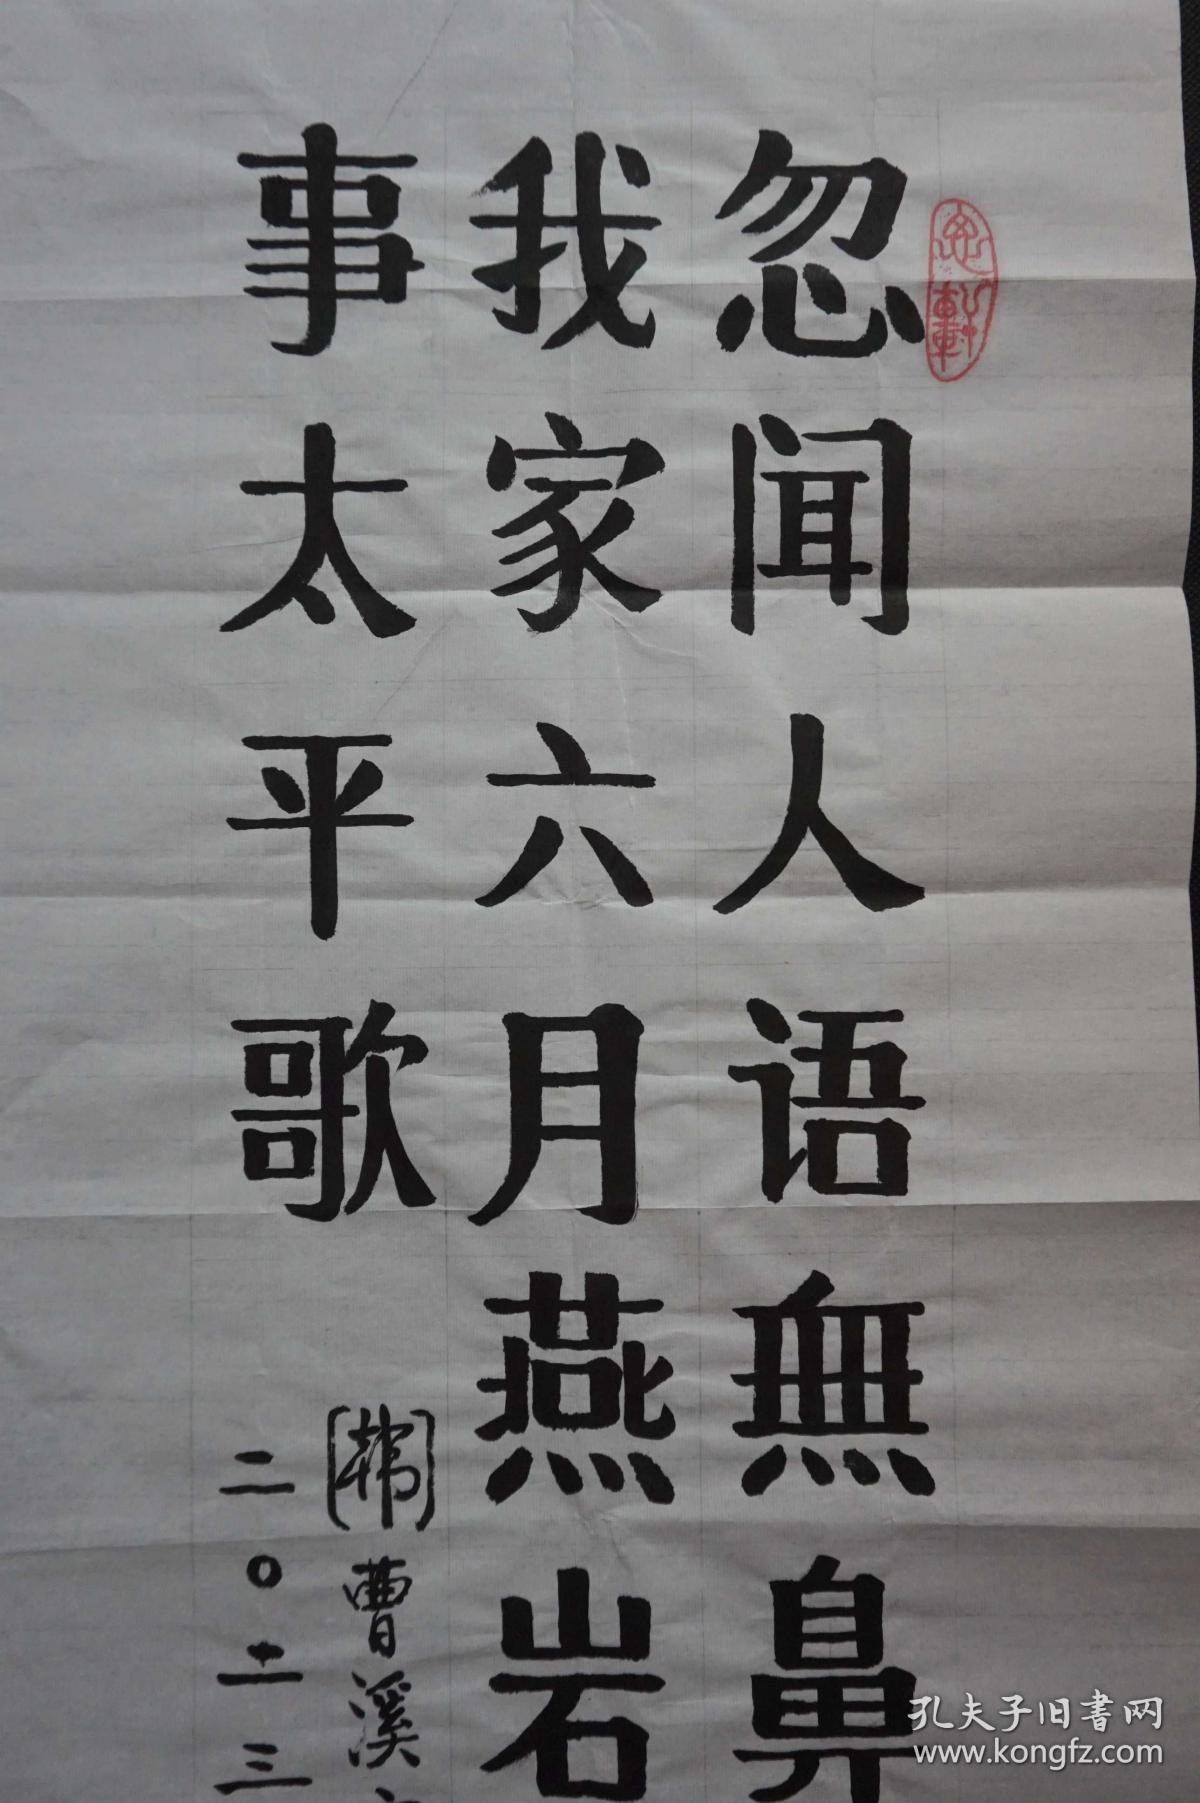 忽闻人语無鼻
我家六月燕岩
事太平歌
[韩]曹溪
二〇一三
孔夫子旧书网
www.kongfz.com